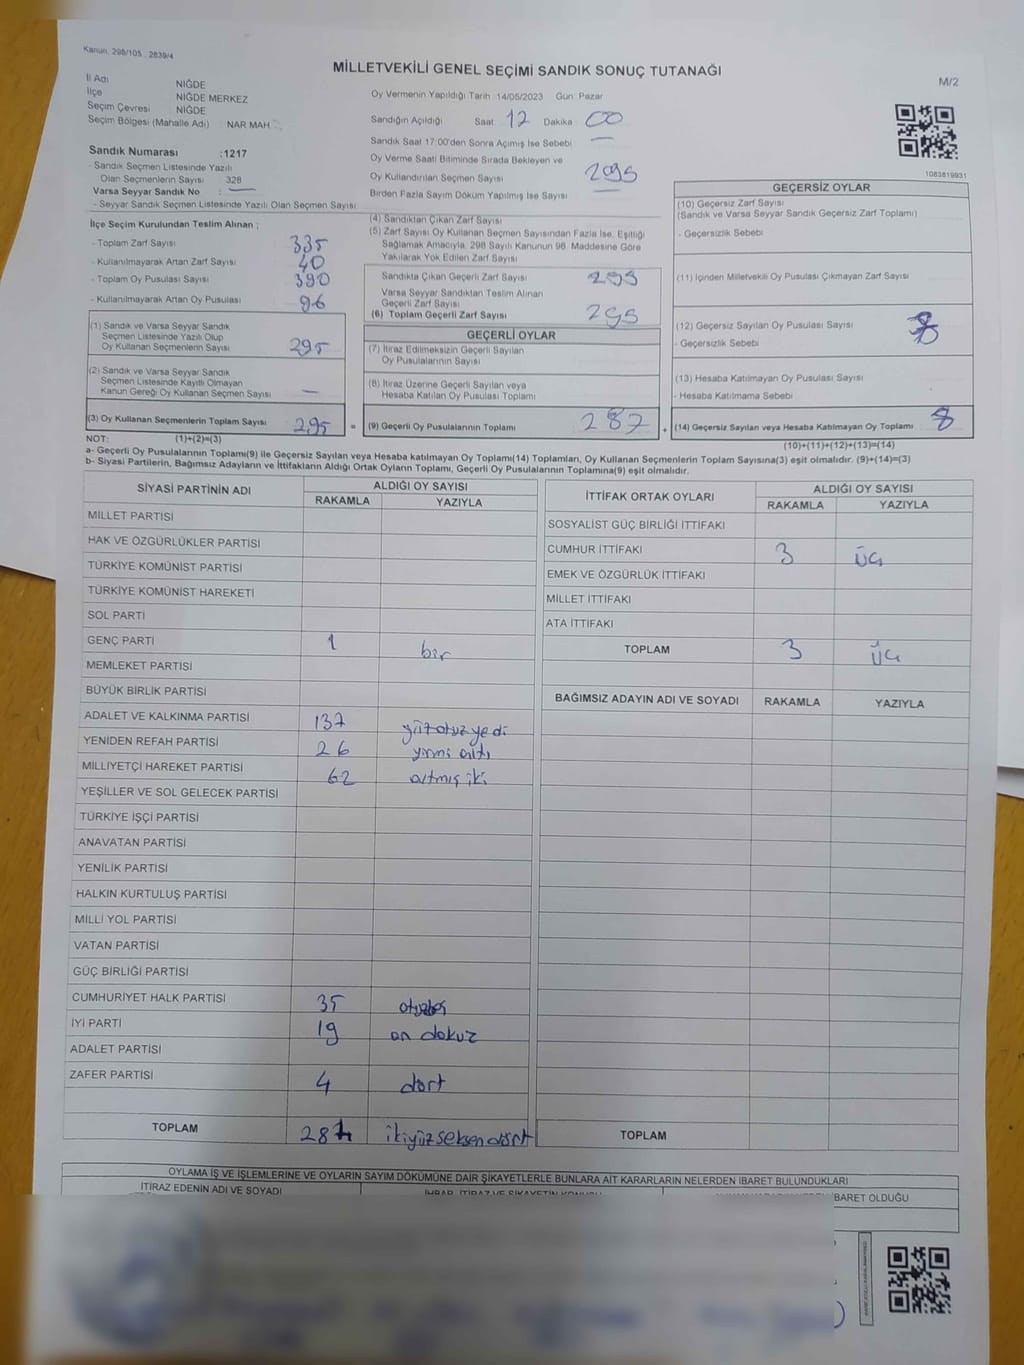 Kanun. 298/105 . 2839/4
MİLLETVEKİLİ GENEL SEÇİMİ SANDIK SONUÇ TUTANAĞI
M/2
İl Adı NİĞDE
İlçe NİĞDE MERKEZ
Seçim Çevresi NİĞDE
Seçim Bölgesi (Mahalle Adı) NAR MAH
Sandık Numarası :1217
- Sandık Seçmen Listesinde Yazılı
Olan Seçmenlerin Sayısı 328
Varsa Seyyar Sandık No : —
- Seyyar Sandık Seçmen Listesinde Yazılı Olan Seçmen Sayısı
Oy Vermenin Yapıldığı Tarih :14/05/2023 Gün Pazar
Sandığın Açıldığı Saat 12 Dakika 00
Sandık Saat 17:00'den Sonra Açılmış İse Sebebi —
Oy Verme Saati Bitiminde Sırada Bekleyen ve
Oy Kullandırılan Seçmen Sayısı
Birden Fazla Sayım Döküm Yapılmış İse Sayısı —
1083819931
İlçe Seçim Kurulundan Teslim Alınan ;
- Toplam Zarf Sayısı 335
- Kullanılmayarak Artan Zarf Sayısı 40
- Toplam Oy Pusulası Sayısı 390
- Kullanılmayarak Artan Oy Pusulası 96
(1) Sandık ve Varsa Seyyar Sandık
Seçmen Listesinde Yazılı Olup
Oy Kullanan Seçmenlerin Sayısı 295
(2) Sandık ve Varsa Seyyar Sandık
Seçmen Listesinde Kayıtlı Olmayan
Kanun Gereği Oy Kullanan Seçmen Sayısı —
(3) Oy Kullanan Seçmenlerin Toplam Sayısı 295 =
(4) Sandıktan Çıkan Zarf Sayısı
(5) Zarf Sayısı Oy Kullanan Seçmen Sayısından Fazla İse, Eşitliği
Sağlamak Amacıyla, 298 Sayılı Kanunun 98. Maddesine Göre
Yakılarak Yok Edilen Zarf Sayısı
Sandıkta Çıkan Geçerli Zarf Sayısı 295
Varsa Seyyar Sandıktan Teslim Alınan
Geçerli Zarf Sayısı
(6) Toplam Geçerli Zarf Sayısı 295
GEÇERLİ OYLAR
(7) İtiraz Edilmeksizin Geçerli Sayılan
Oy Pusulalarının Sayısı
(8) İtiraz Üzerine Geçerli Sayılan veya
Hesaba Katılan Oy Pusulaları Toplamı
(9) Geçerli Oy Pusulalarının Toplamı 287 +
GEÇERSİZ OYLAR
(10) Geçersiz Zarf Sayısı
(Sandık ve Varsa Seyyar Sandık Geçersiz Zarf Toplamı)
- Geçersizlik Sebebi
(11) İçinden Milletvekili Oy Pusulası Çıkmayan Zarf Sayısı
(12) Geçersiz Sayılan Oy Pusulası Sayısı 8
- Geçersizlik Sebebi
(13) Hesaba Katılmayan Oy Pusulası Sayısı
- Hesaba Katılmama Sebebi
(14) Geçersiz Sayılan veya Hesaba Katılmayan Oy Toplamı 8
NOT: (1)+(2)=(3)
(10)+(11)+(12)+(13)=(14)
a- Geçerli Oy Pusulalarının Toplamı(9) ile Geçersiz Sayılan veya Hesaba katılmayan Oy Toplamı(14) Toplamları, Oy Kullanan Seçmenlerin Toplam Sayısına(3) eşit olmalıdır. (9)+(14)=(3)
b- Siyasi Partilerin, Bağımsız Adayların ve İttifakların Aldığı Ortak Oyların Toplamı, Geçerli Oy Pusulalarının Toplamına(9) eşit olmalıdır.
SİYASİ PARTİNİN ADI ALDIĞI OY SAYISI
RAKAMLA YAZIYLA
MİLLET PARTİSİ
HAK VE ÖZGÜRLÜKLER PARTİSİ
TÜRKİYE KOMÜNİST PARTİSİ
TÜRKİYE KOMÜNİST HAREKETİ
SOL PARTİ
GENÇ PARTİ 1 bir
MEMLEKET PARTİSİ
BÜYÜK BİRLİK PARTİSİ
ADALET VE KALKINMA PARTİSİ 137 yüzotuzyedi
YENİDEN REFAH PARTİSİ 26 yirmi altı
MİLLİYETÇİ HAREKET PARTİSİ 62 altmış iki
YEŞİLLER VE SOL GELECEK PARTİSİ
TÜRKİYE İŞÇİ PARTİSİ
ANAVATAN PARTİSİ
YENİLİK PARTİSİ
HALKIN KURTULUŞ PARTİSİ
MİLLİ YOL PARTİSİ
VATAN PARTİSİ
GÜÇ BİRLİĞİ PARTİSİ
CUMHURİYET HALK PARTİSİ 35 otuzbeş
İYİ PARTİ 19 on dokuz
ADALET PARTİSİ
ZAFER PARTİSİ 4 dört
TOPLAM 284 ikiyüzseksendört
İTTİFAK ORTAK OYLARI ALDIĞI OY SAYISI
RAKAMLA YAZIYLA
SOSYALİST GÜÇ BİRLİĞİ İTTİFAKI
CUMHUR İTTİFAKI 3 üç
EMEK VE ÖZGÜRLÜK İTTİFAKI
MİLLET İTTİFAKI
ATA İTTİFAKI
TOPLAM 3 üç
BAĞIMSIZ ADAYIN ADI VE SOYADI RAKAMLA YAZIYLA
TOPLAM
OYLAMA İŞ VE İŞLEMLERİNE VE OYLARIN SAYIM DÖKÜMÜNE DAİR ŞİKAYETLERLE BUNLARA AİT KARARLARIN NELERDEN İBARET BULUNDUKLARI
İTİRAZ EDENİN ADI VE SOYADI
BARET OLDUĞU